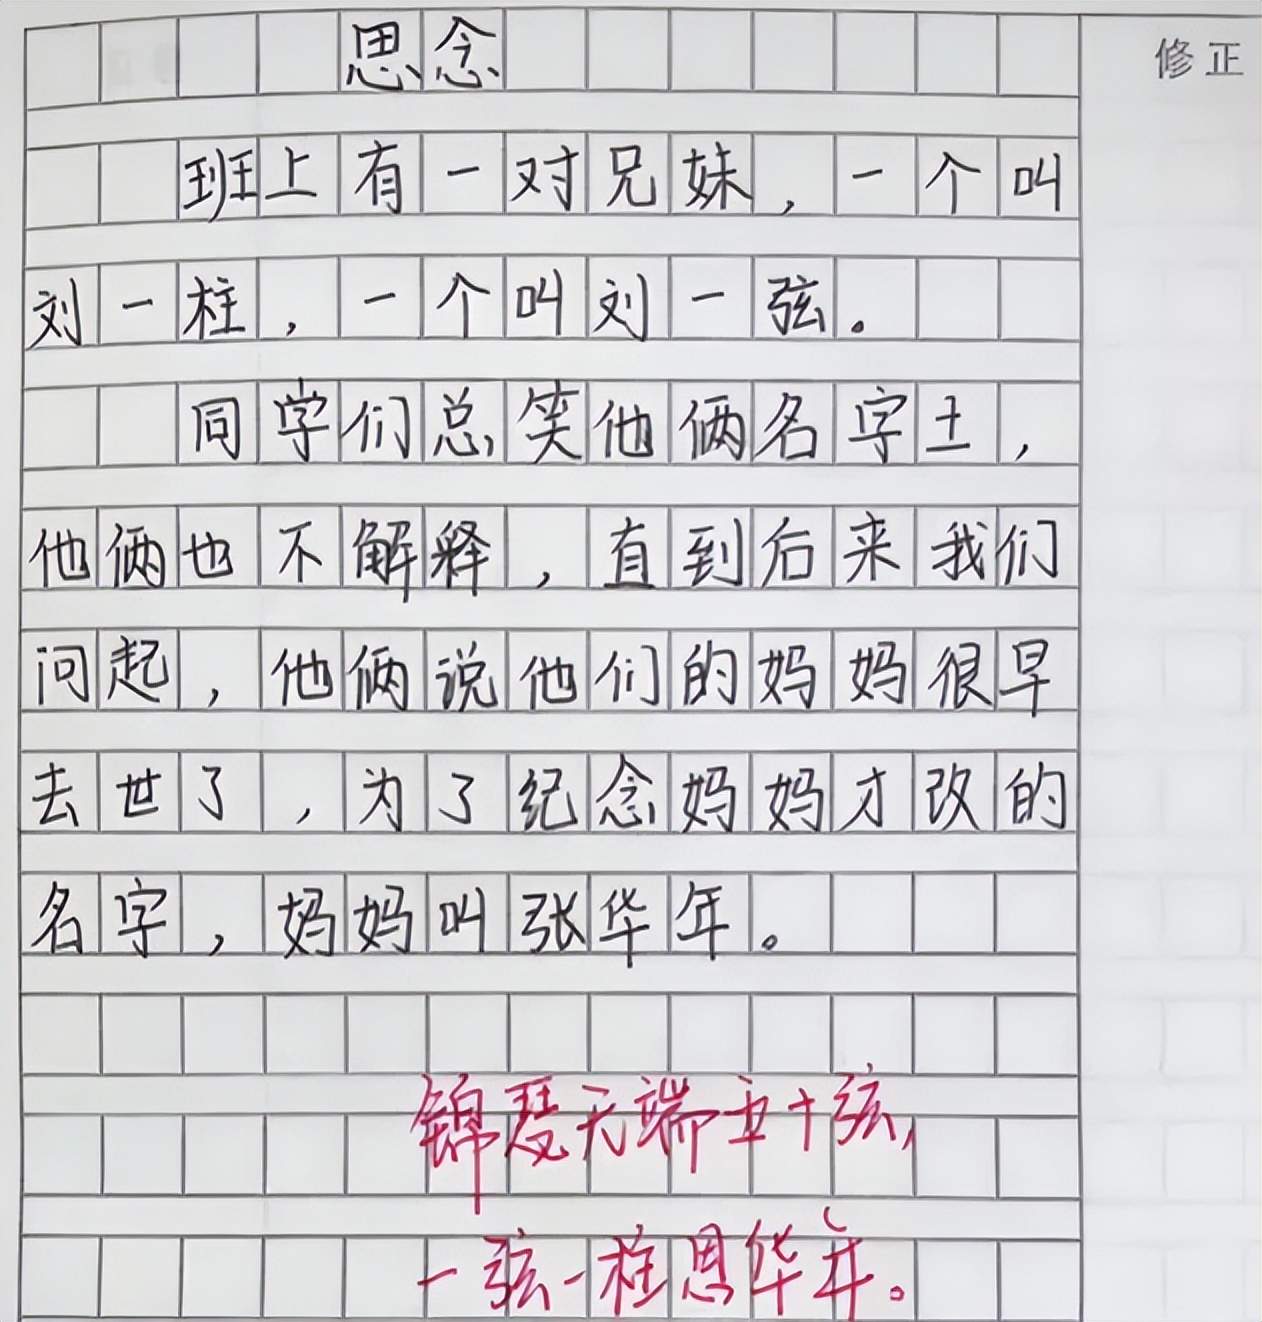 思念
修正
班上有一对兄妹，一个叫
刘一柱，一个叫刘一弦。
同学们总笑他俩名字土，
他俩也不解释，直到后来我们
问起，他俩说他们的妈妈很早
去世了，为了纪念妈妈才改的
名字，妈妈叫张华年。
锦瑟无端五十弦，
一弦一柱思华年。